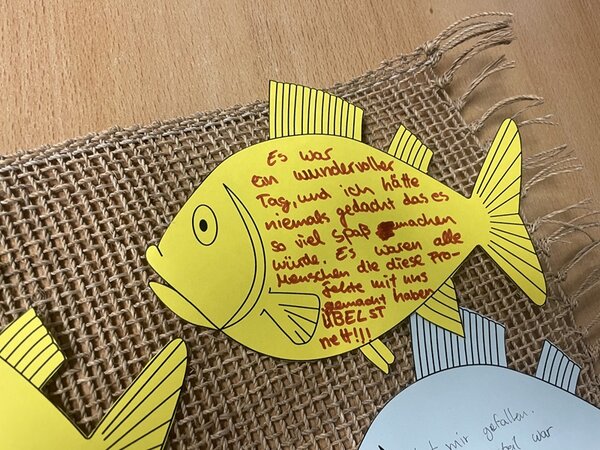 Es war
ein wundervoller
Tag, und ich hätte
niemals gedacht das es
so viel Spaß machen
würde. Es waren alle
Menschen die diese Pro-
jekte mit uns
gemacht haben
ÜBELST
nett!!!
mir gefallen.
war